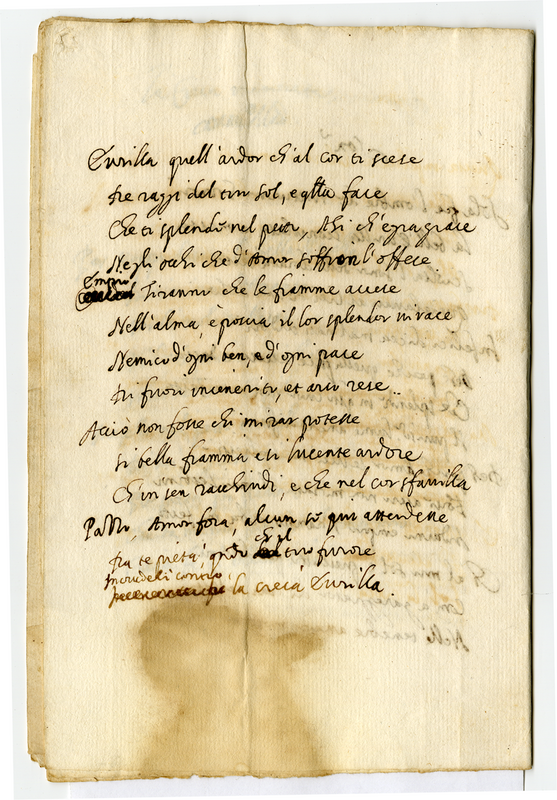 Lurilla quell'ardor ch'al cor ti scese
tre raggi del tuo sol, e q̃lla face
Che ti splende nel petto, Ahi ch'egra giace
Negli occhi che d'Amor soffron l'offese.
Empio Tiranno che le fiamme accese
Nell'alma, e poscia il lor splendor vivace
Nemico d'ogni ben, e d'ogni pace
Di fuori incenerito, et arso rese.
Acciò non fosse chi mirar potesse
Si bella fiamma e si lucente ardore
Ch'in sen racchiudi, e che nel cor sfavilla
Amor fora, alcun se qui attendesse
fra te pietà, ch'il tuo furore
Incrudelì contro
la cieca Lurilla.